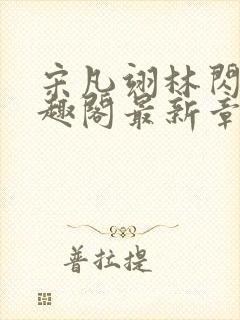 宋凡翊林閃
趣閣最新章
普拉提